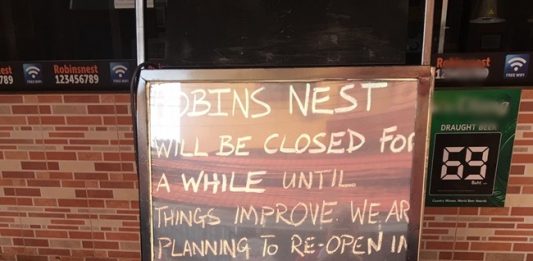 Robinsnest
123456789
FREE WIFI
OBINS NEST
WILL BE CLOSED FO
A WHILE UNTIL
THINGS IMPROVE. WE AR
PLANNING TO RE-OPEN IN
est
789
FREE WIFI
Robinsnest
FREE WIFI
DRAUGHT BEER
69
Baht